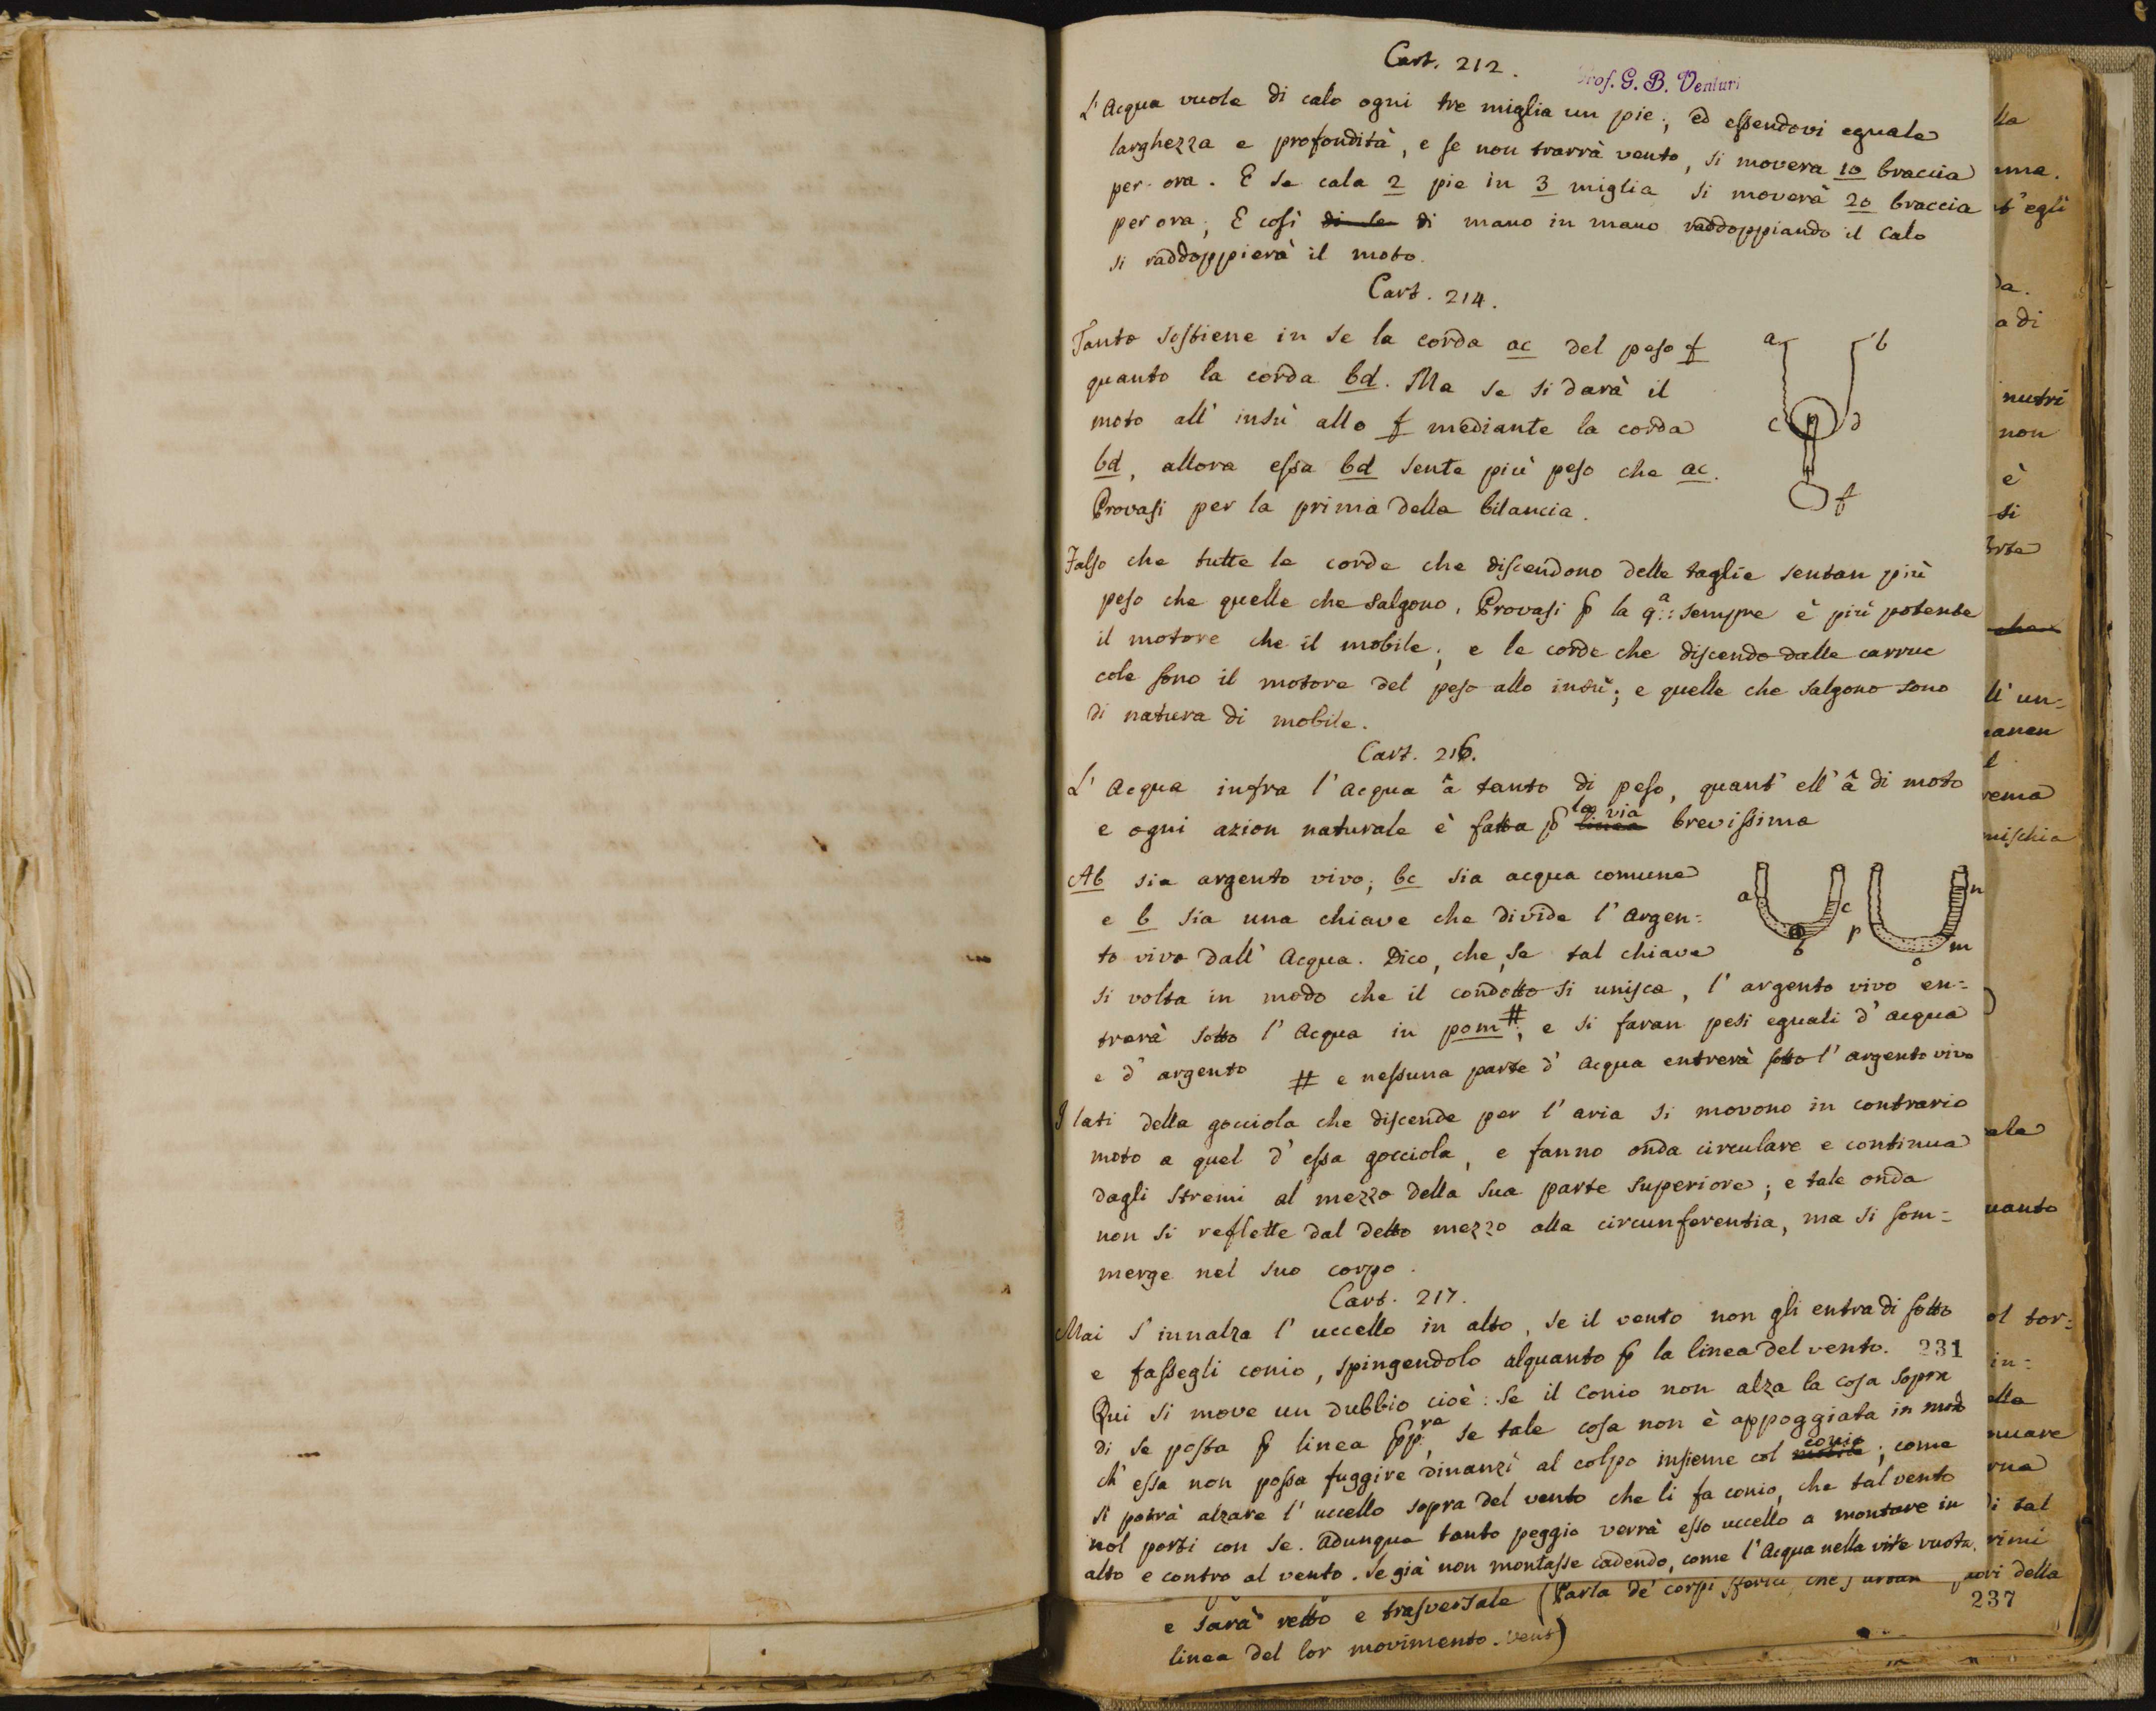 Cart. 212.
Prof. G. B. Venturi
L'Acqua vuole di calo ogni tre miglia un pie; ed essendovi eguale
larghezza e profondità, e se non trarrà vento, si movera 10 braccia
per ora. E se cala 2 pie in 3 miglia si moverà 20 braccia
per ora; E così di se di mano in mano raddoppiando il calo
si raddoppierà il moto.
Cart. 214.
Tanto sostiene in se la corda ac del peso f
quanto la corda bd. Ma se si darà il
moto all' insù allo f mediante la corda
bd, allora essa bd sente più peso che ac.
Provasi per la prima della bilancia.
a b
c d
f
Falso che tutte le corde che discendono delle taglie sentan più
peso che quelle che salgono. Provasi p la 9.a: sempre è più potente
il motore che il mobile; e le corde che discendo dalle carruc
cole sono il motore del peso allo insù; e quelle che salgono sono
di natura di mobile.
Cart. 216.
L'Acqua infra l'acqua â tanto di peso, quant' ell' â di moto
e ogni azion naturale è fatta p linea la via brevissima
Ab sia argento vivo; bc sia acqua comune
e b sia una chiave che divide l'argen=
to vivo dall' Acqua. Dico, che, se tal chiave
si volta in modo che il condotto si unisca, l'argento vivo en=
trerà sotto l'Acqua in pom #; e si faran pesi eguali d'acqua
e d'argento # e nessuna parte d'Acqua entrerà sotto l'argento vivo
a c b p n m o
I lati della gocciola che discende per l'aria si movono in contrario
moto a quel d'essa gocciola, e fanno onda circulare e continua
dagli stremi al mezzo della sua parte superiore; e tale onda
non si reflette dal detto mezzo alla circunferentia, ma si som=
merge nel suo corpo.
Cart. 217.
Mai s'innalza l'uccello in alto, se il vento non gli entra di sotto
e fassegli conio, spingendolo alquanto p la linea del vento. 231
Qui si move un dubbio cioè: Se il conio non alza la cosa sopra
di se posta p linea pp.ra, se tale cosa non è appoggiata in mod
ch'essa non possa fuggire dinanzi al colpo insieme col mobile conio; come
si potrà alzare l'uccello sopra del vento che li fa conio, che tal vento
nol porti con se. Adunque tanto peggio verrà esso uccello a montare in
alto e contro al vento. Se già non montasse cadendo, come l'Acqua nella vite vuota.
e sarà retto e trasversale (Parla de' corpi sferici, che
linea del lor movimento. Vent)
237
lla
una.
t'egli
da.
a di
nutri
non
è
si
che
ll' un=
rema
mischia
ale
uanto
ol tor=
in=
ella
nuare
di tal
rimi
della